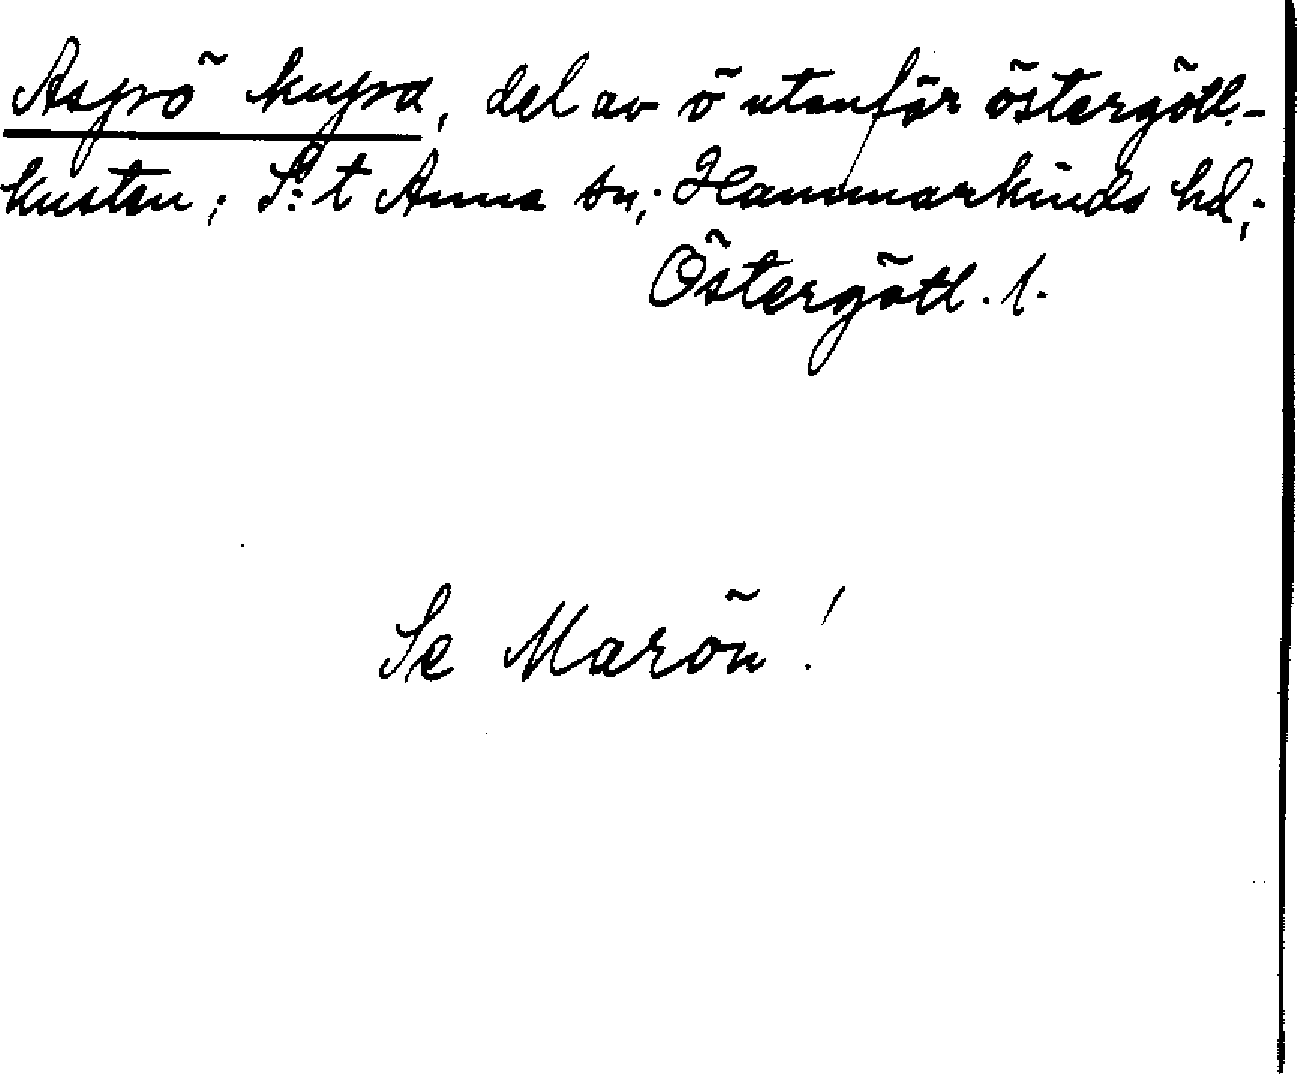 Aspö kupa, del av ö utanför östergötl.-
kusten; S:t Anna sn; Hammarkinds hd;
Östergötl. l.
Se Marön!